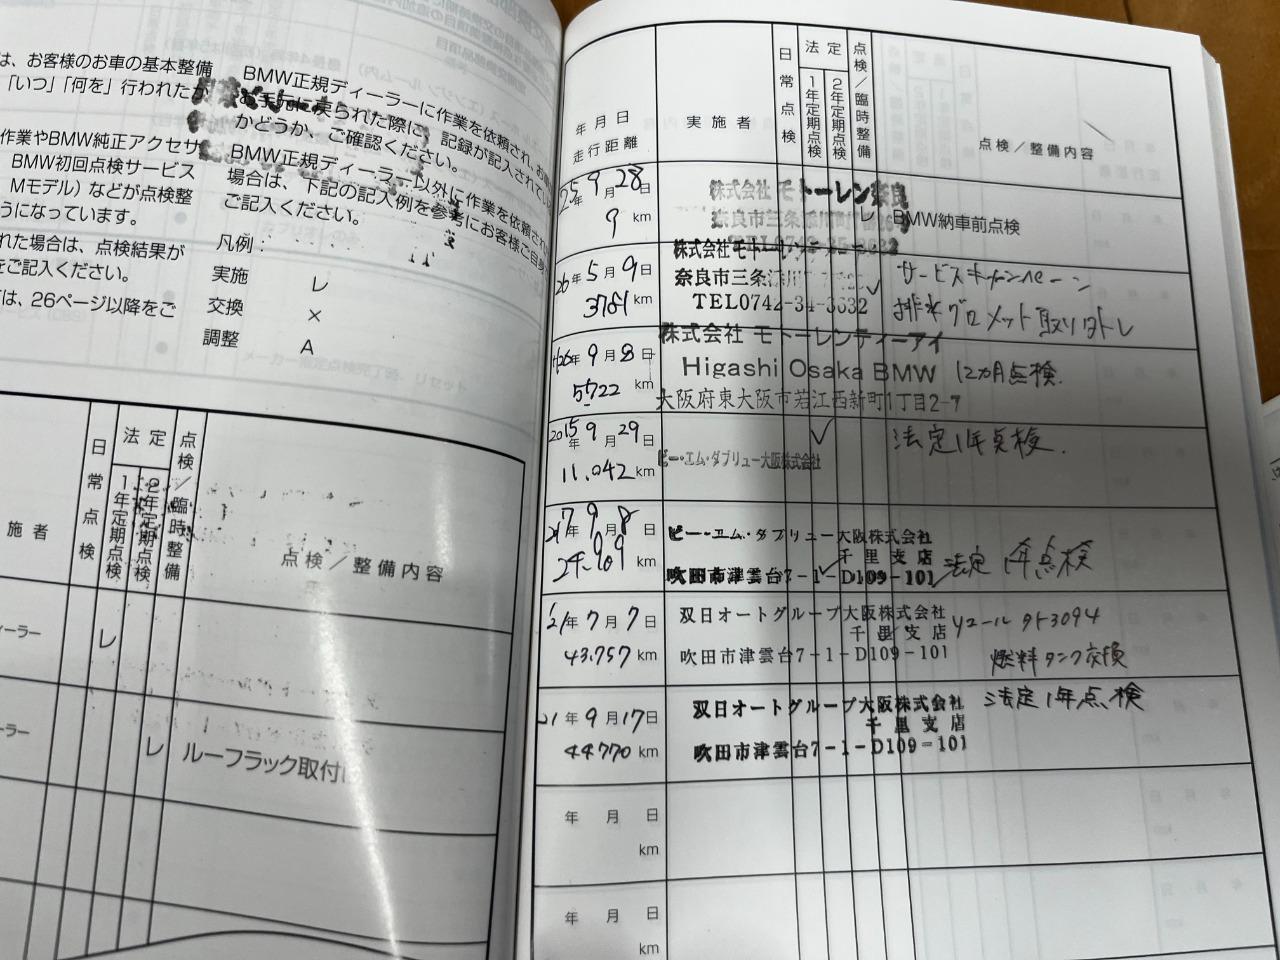 は、お客様のお車の基本整備
「いつ」「何を」行われたか
作業やBMW純正アクセサ
BMW初回点検サービス
Mモデル）などが点検整
うになっています。
れた場合は、点検結果が
をご記入ください。
は、26ページ以降をご
BMW正規ディーラーに作業を依頼され、お
お手元に戻られた際に、記録が記入されてい
かどうか、ご確認ください。
BMW正規ディーラー以外に作業を依頼され
場合は、下記の記入例を参考にお客様ご自身
ご記入ください。
凡例：
実施 レ
交換 ×
調整 A
施者
日常点検
法定
1年定期点検
2年定期点検
点検／臨時整備
点検／整備内容
ィーラー
レ
ーラー
レ
ルーフラック取付
年月日
走行距離
実施者
日常点検
法定
1年定期点検
2年定期点検
点検／臨時整備
点検／整備内容
25年9月28日
9 km
株式会社 モトーレン奈良
奈良市三条添川町
レ
BMW納車前点検
26年5月9日
3781 km
株式会社
奈良市三条添川
TEL0742-34-3632
サービスキャンペーン
排水グロメット取り外し
26年9月8日
5722 km
株式会社 モトーレンティーアイ
Higashi Osaka BMW
大阪府東大阪市若江西新町1丁目2-7
12カ月点検.
2015年9月29日
11.042 km
ビー・エム・ダブリュー大阪株式会社
法定1年点検.
年9月8日
24.909 km
ビー・エム・ダブリュー大阪株式会社
千里支店
吹田市津雲台7-1-D109-101
法定 1年点検
'21年7月7日
43.757 km
双日オートグループ大阪株式会社
千里支店
吹田市津雲台7-1-D109-101
リコール 外3094
燃料タンク交換
21年9月17日
44770 km
双日オートグループ大阪株式会社
千里支店
吹田市津雲台7-1-D109-101
法定1年点検
年 月 日
km
年 月 日
km